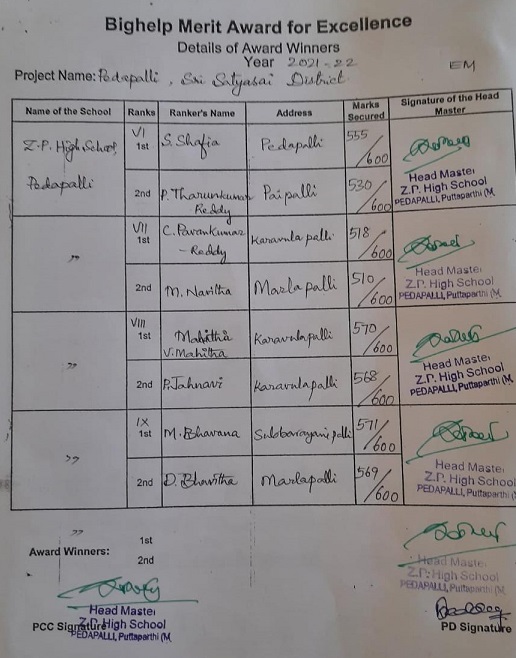 Bighelp Merit Award for Excellence
Details of Award Winners
Year 2021-22
EM
Project Name: Pedapalli, Sri Satyasai District
Name of the School Ranks Ranker's Name Address Marks Secured Signature of the Head Master
Z.P. High School, Pedapalli VI 1st S. Shafia Pedapalli 555/600
Head Master
Z.P. High School
PEDAPALLI, Puttaparthi (M,
2nd P. Tharunkumar Reddy Paipalli 530/600
" VII 1st C. Pavankumar - Reddy Karavulapalli 518/600
Head Master
Z.P. High School
PEDAPALLI, Puttaparthi (M,
2nd M. Navitha Marlapalli 510/600
" VIII 1st Mahitha V. Mahitha Karavulapalli 570/600
Head Master
Z.P. High School
PEDAPALLI, Puttaparthi (M,
2nd P. Jahnavi Karavulapalli 568/600
" IX 1st M. Bhavana 571/600
Head Master
Z.P. High School
PEDAPALLI, Puttaparthi (
2nd D. Bhavitha Marlapalli 569/600
"
Award Winners: 1st
2nd
Head Master
Z.P. High School
PEDAPALLI, Puttaparthi (M,
Head Master
Z.P. High School
PEDAPALLI, Puttaparthi (M,
PCC Signature
PD Signature